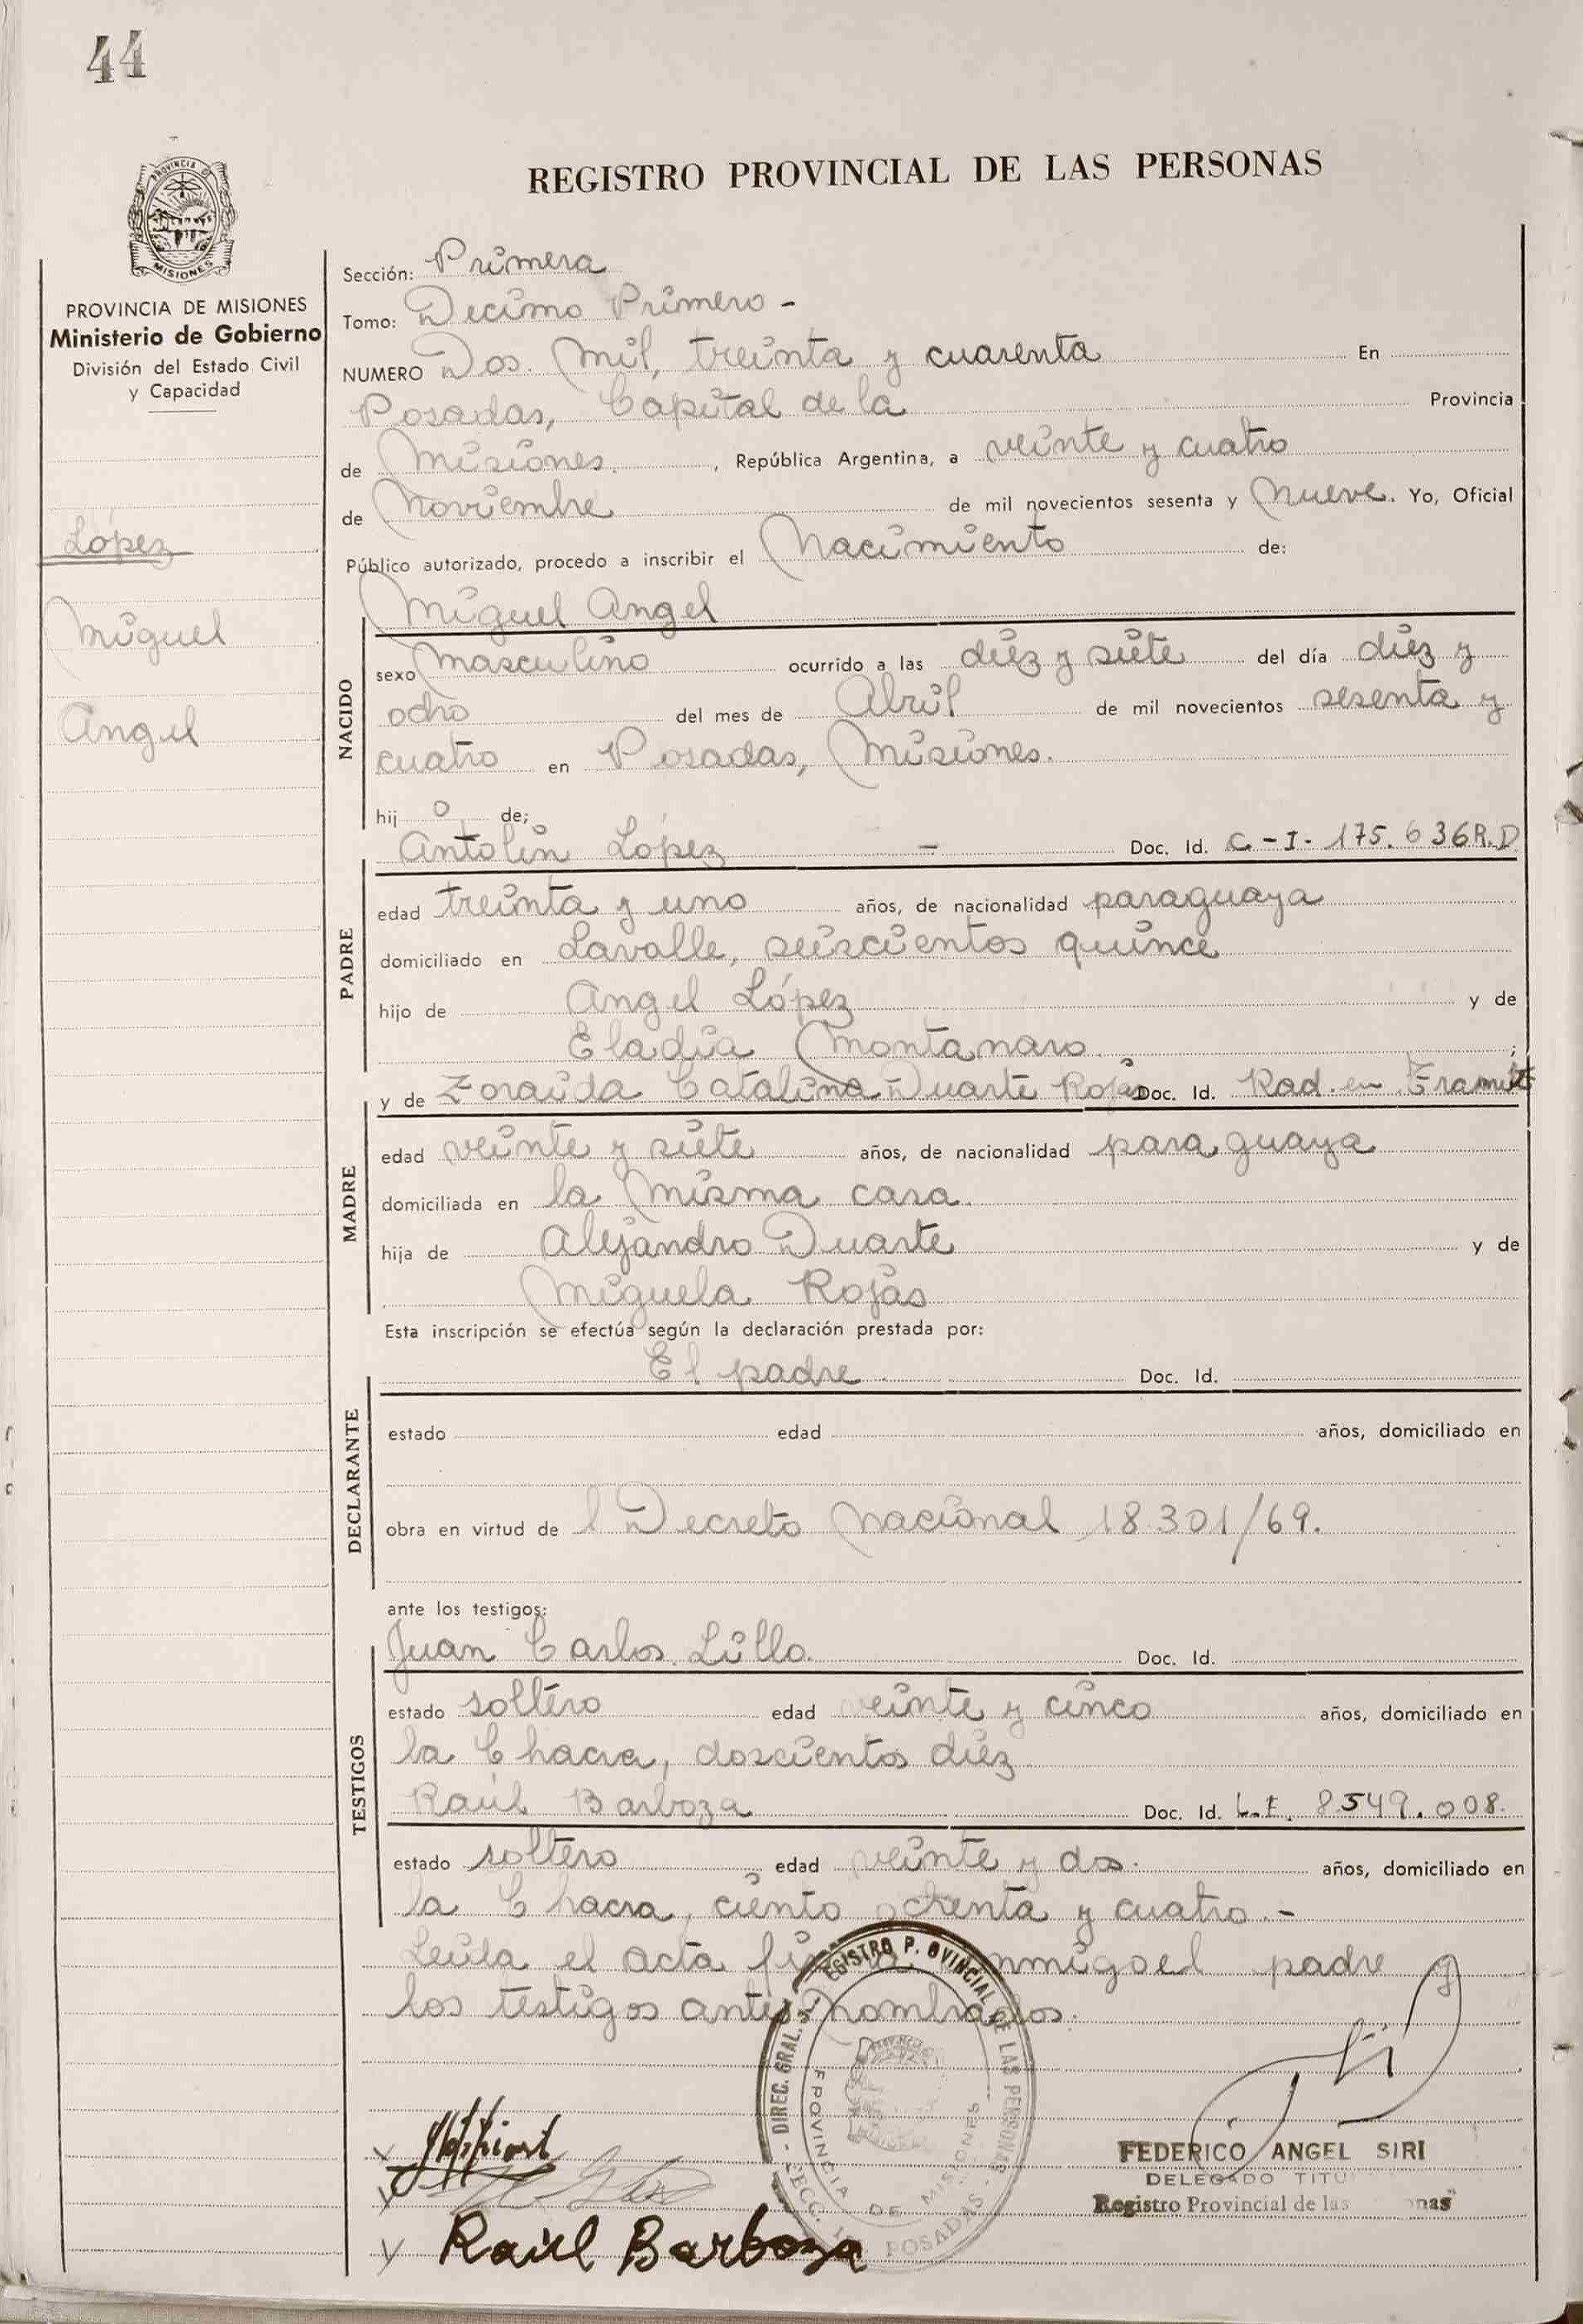 44
PROVINCIA DE MISIONES
Ministerio de Gobierno
División del Estado Civil
y Capacidad
López
Miguel
Angel
REGISTRO PROVINCIAL DE LAS PERSONAS
Sección: Primera
Tomo: Decimo Primero -
NUMERO Dos. Mil, treinta y cuarenta En
Posadas, Capital de la Provincia
de Misiones. , República Argentina, a veinte y cuatro
de Noviembre de mil novecientos sesenta y Nueve. Yo, Oficial
Público autorizado, procedo a inscribir el Nacimiento de:
Miguel Angel
NACIDO
sexo Masculino ocurrido a las diez y siete del día diez y
ocho del mes de Abril de mil novecientos sesenta y
cuatro en Posadas, Misiones.
hij o de;
Antolin López - Doc. Id. C-I-175.636R.D
PADRE
edad treinta y uno años, de nacionalidad paraguaya
domiciliado en Lavalle, seiscientos quince
hijo de Angel López y de
Eladia Montanaro. ;
y de Zoraida Catalina Duarte Rojas Doc. Id. Rad. en Tramite
MADRE
edad veinte y siete años, de nacionalidad paraguaya
domiciliada en la misma casa.
hija de Alejandro Duarte y de
Miguela Rojas
Esta inscripción se efectúa según la declaración prestada por:
El padre Doc. Id.
DECLARANTE
estado edad años, domiciliado en
obra en virtud de l Decreto Nacional 18.301/69.
ante los testigos:
Juan Carlos Lillo. Doc. Id.
TESTIGOS
estado soltero edad veinte y cinco años, domiciliado en
la Chacra, doscientos diez
Raúl Barboza Doc. Id. L.E. 8.549.008.
estado soltero edad veinte y dos. años, domiciliado en
la Chacra, ciento ochenta y cuatro.-
Leida el acta conmigo el padre y
los testigos antes nombrados.
DIREC. GRAL. REGISTRO PROVINCIAL DE LAS PERSONAS
PROVINCIA DE MISIONES
SECC. POSADAS
FEDERICO ANGEL SIRI
DELEGADO TITU
Registro Provincial de las onas
Raúl Barboza